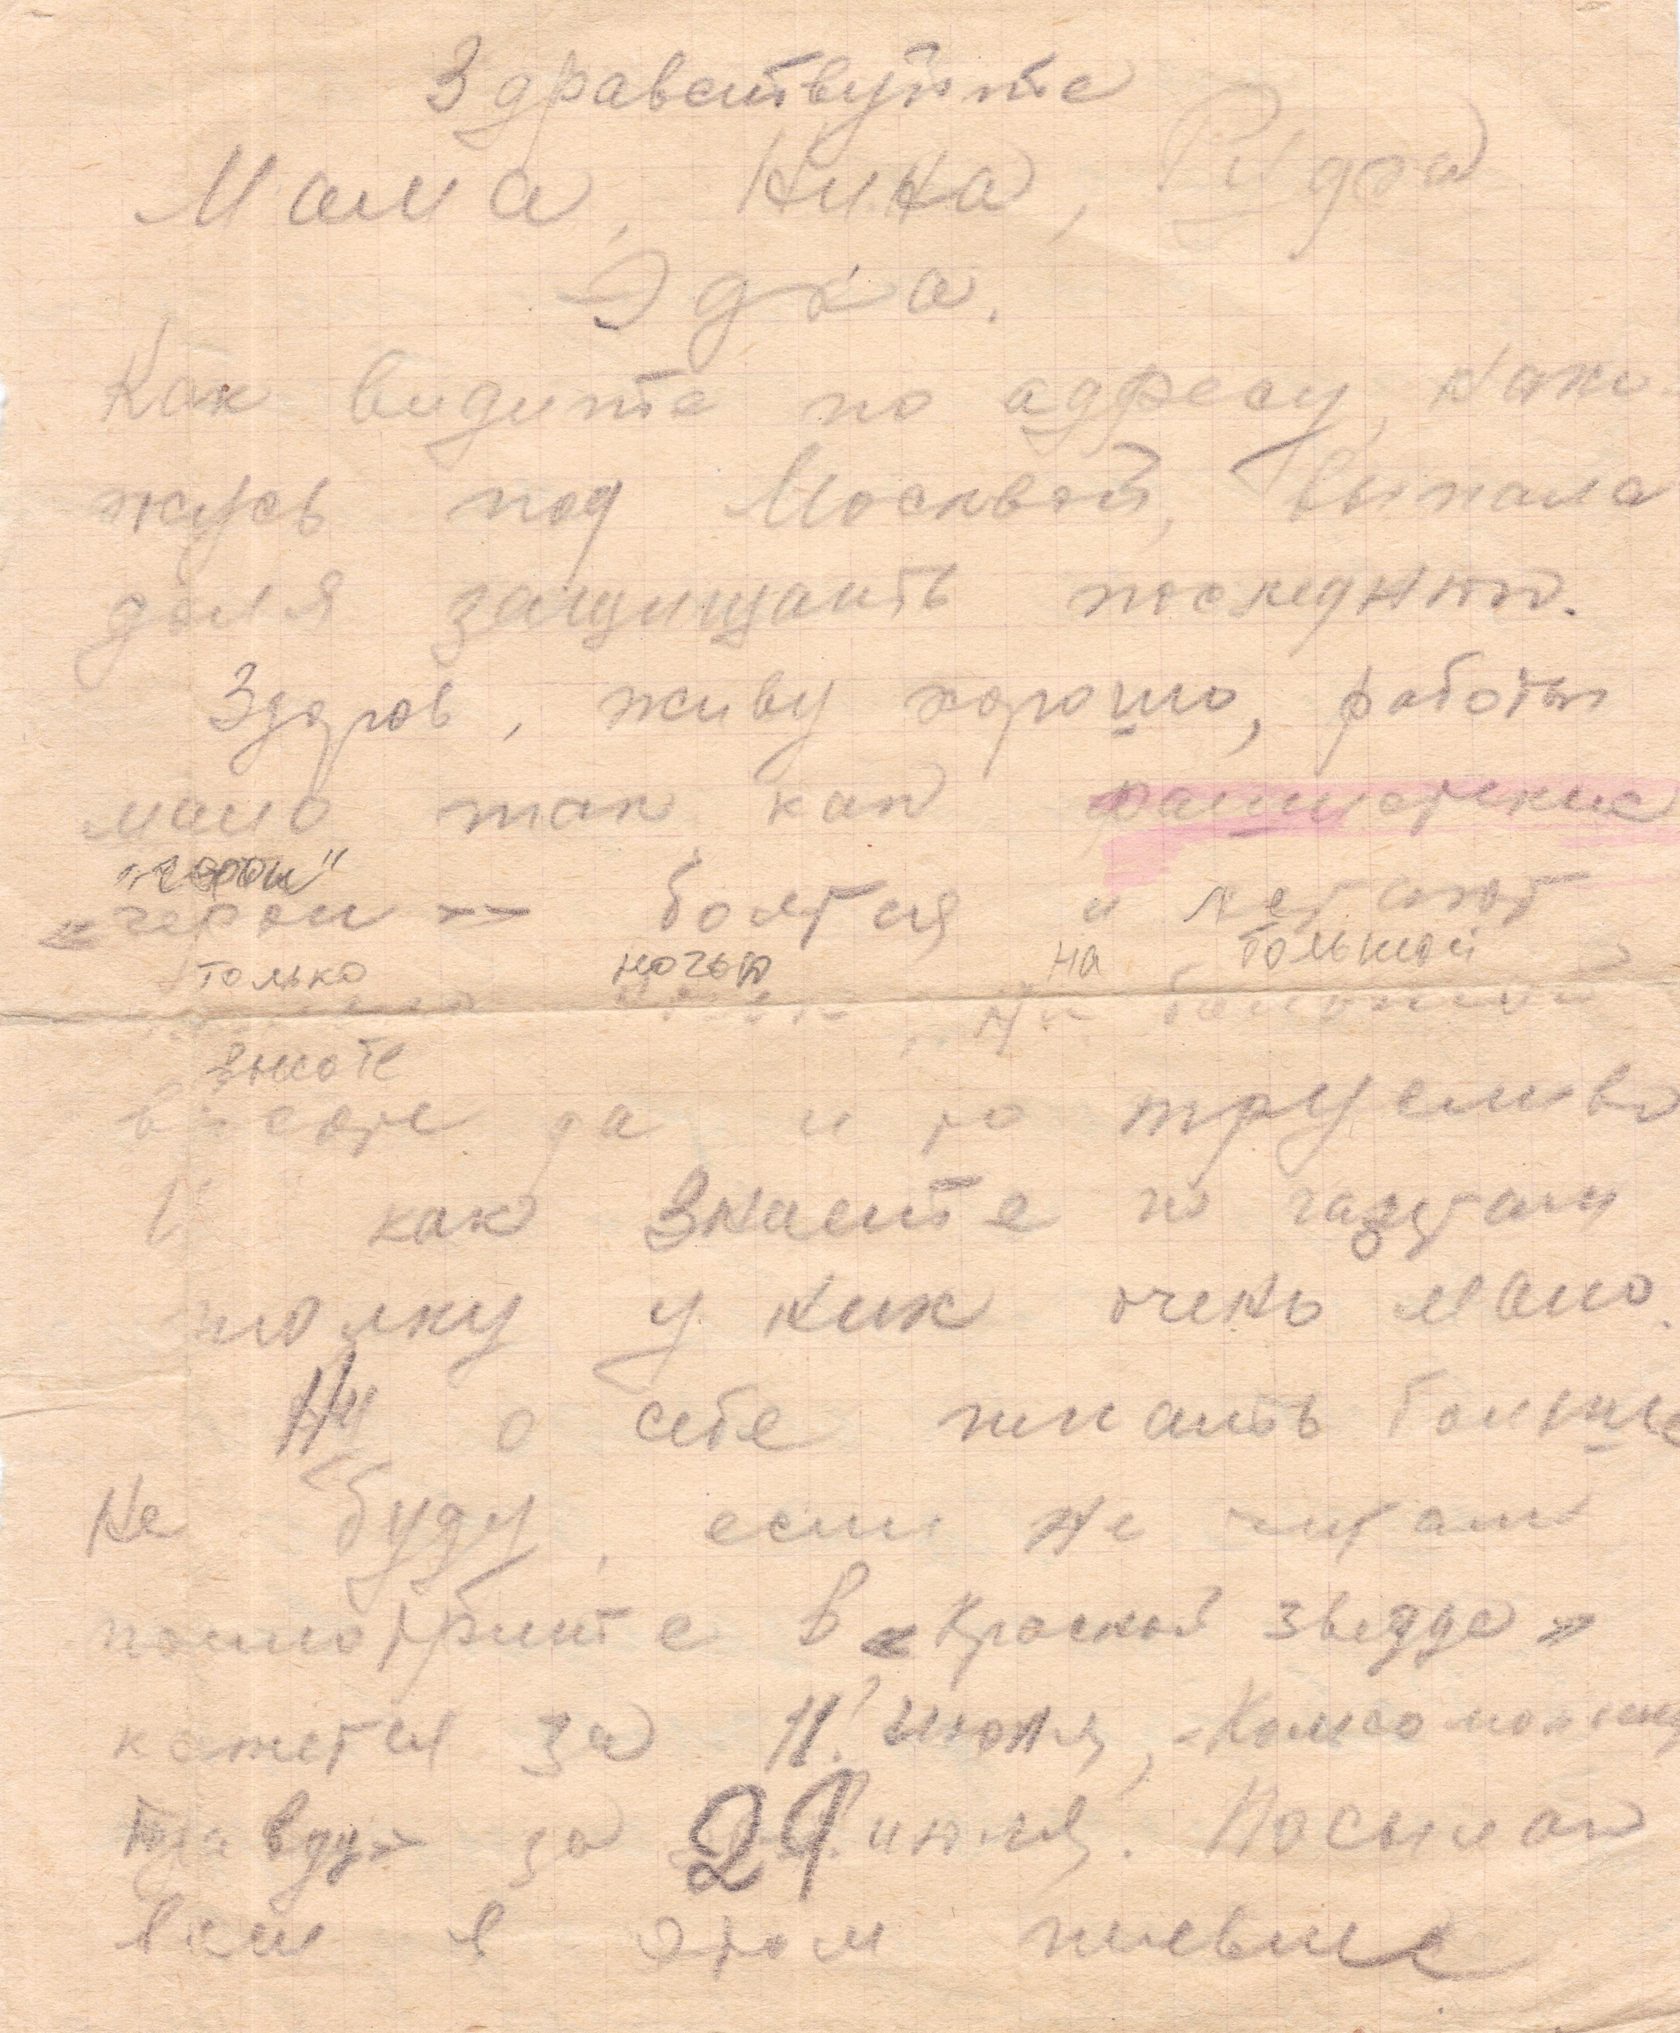 Здравствуйте
Мама, Нина, Рудка
Эдка.
Как видите по адресу, нахо-
жусь под Москвой, выпала
доля защищать последнюю.
Здоров, живу хорошо, работы
мало так как фашистские
"герои"
«герои» боятся и летают
только ночью на большой
только ночью на большой
высоте
высоте да и то трусливо
И как знаете по газетам
толку у них очень мало.
Ну о себе писать больше
не буду, если не читали
посмотрите в «Красной звезде»
кажется за 11 июля, «Комсомольскую
правду» за 29 июля. Посылаю
вам в этом письме